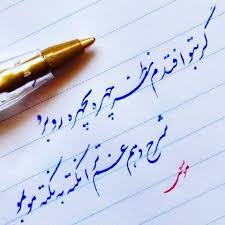 گر بتو افتدم نظر چهره بچهره رو برو
شرح دهم غم ترا نکته به نکته مو بمو